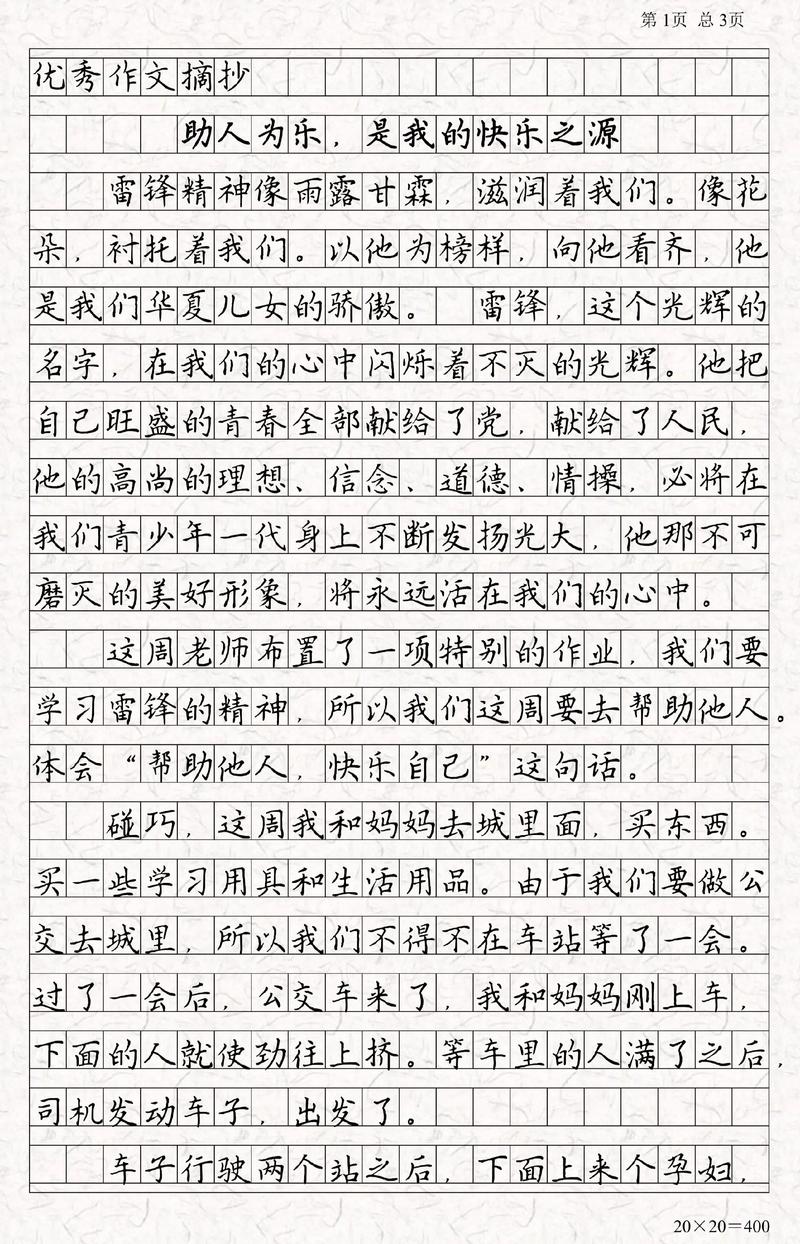 第1页 总3页
优秀作文摘抄
助人为乐，是我的快乐之源
雷锋精神像雨露甘霖，滋润着我们。像花
朵，衬托着我们。以他为榜样，向他看齐，他
是我们华夏儿女的骄傲。 雷锋，这个光辉的
名字，在我们的心中闪烁着不灭的光辉。他把
自己旺盛的青春全部献给了党，献给了人民，
他的高尚的理想、信念、道德、情操，必将在
我们青少年一代身上不断发扬光大，他那不可
磨灭的美好形象，将永远活在我们的心中。
这周老师布置了一项特别的作业，我们要
学习雷锋的精神，所以我们这周要去帮助他人。
体会“帮助他人，快乐自己”这句话。
碰巧，这周我和妈妈去城里面，买东西。
买一些学习用具和生活用品。由于我们要做公
交去城里，所以我们不得不在车站等了一会。
过了一会后，公交车来了，我和妈妈刚上车，
下面的人就使劲往上挤。等车里的人满了之后，
司机发动车子，出发了。
车子行驶两个站之后，下面上来个孕妇，
20×20=400